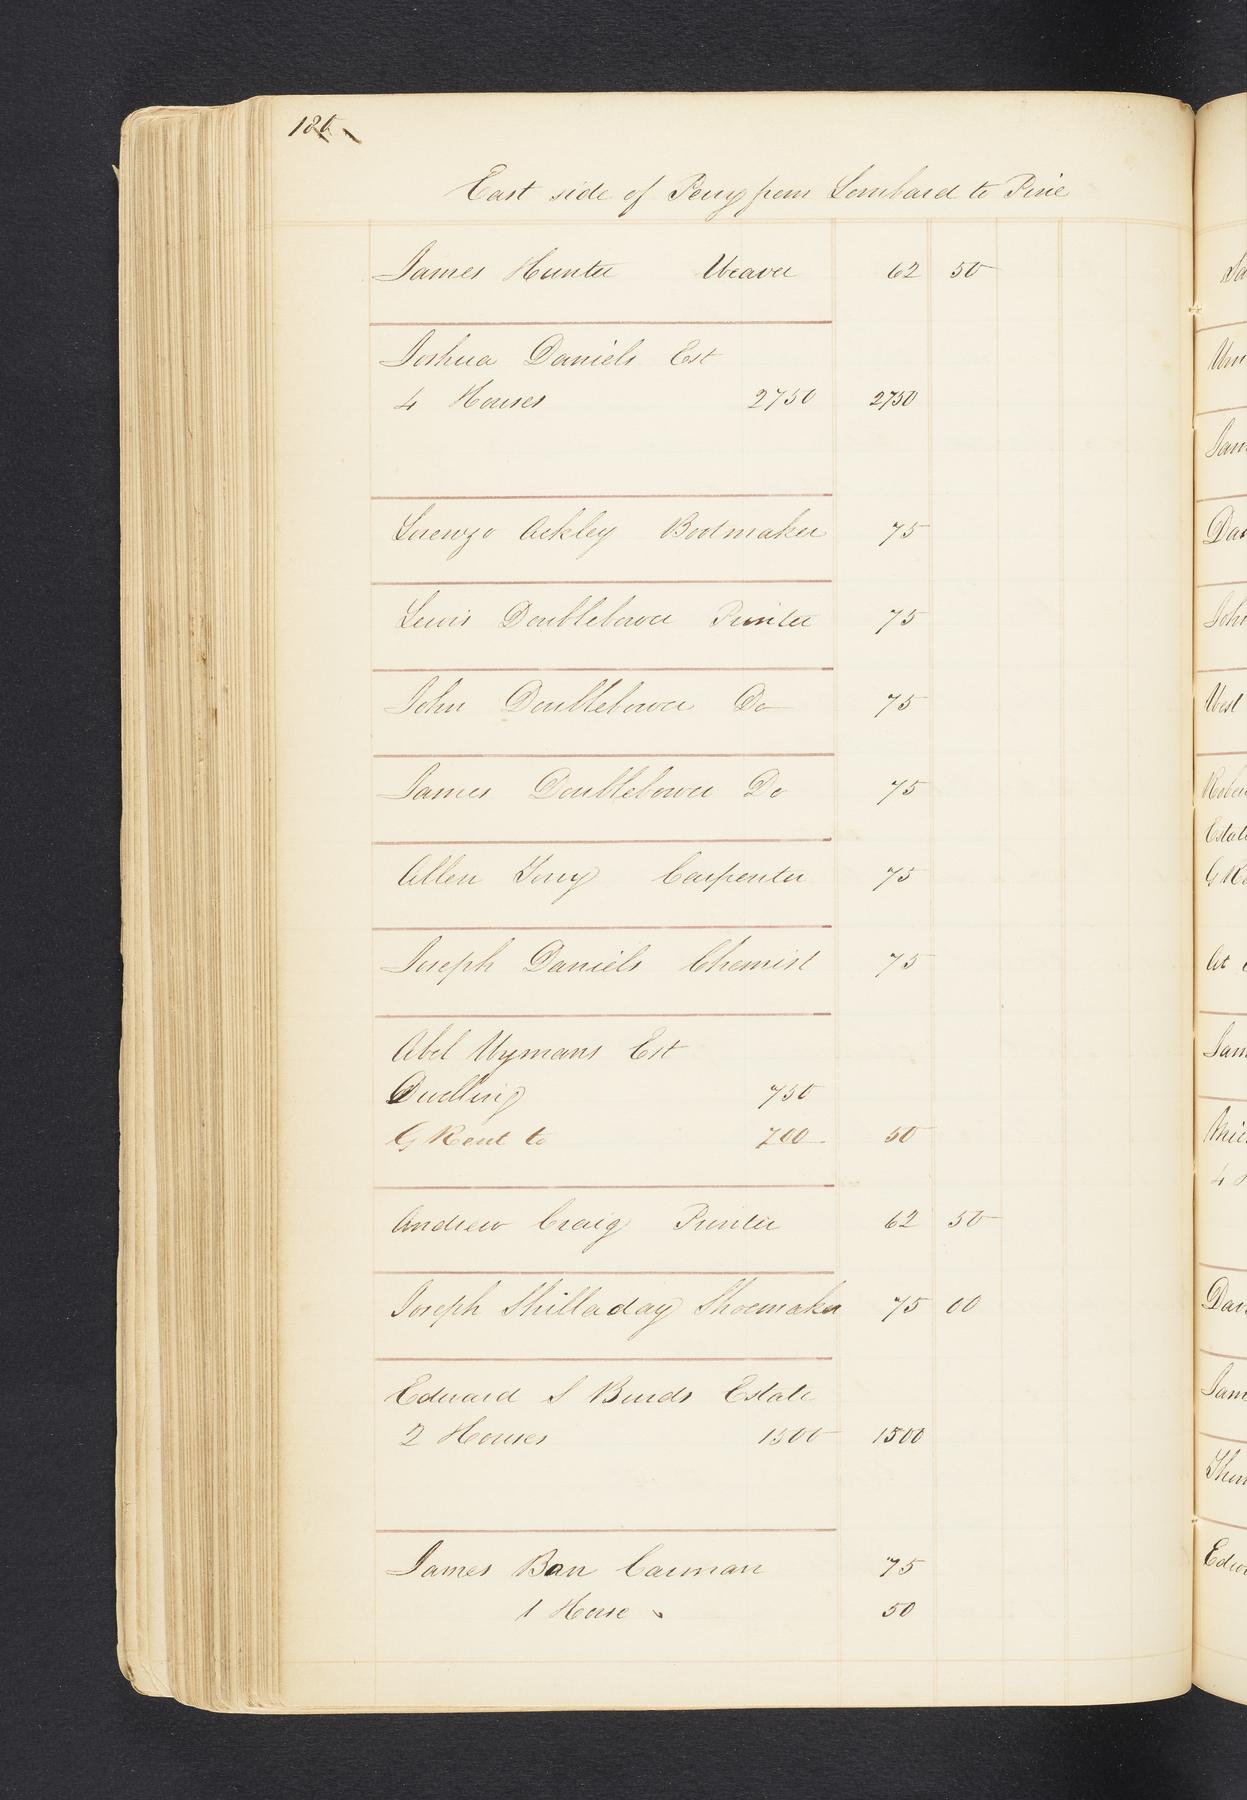 186
East side of Perry from Lombard to Pine
James Hunter Weaver 62 50
Joshua Daniels Est
4 Houses 2750 2750
Lorenzo Ackley Bootmaker 75
Lewis Doublebower Printer 75
John Doublebower Do 75
James Doublebower Do 75
Allen Carpenter 75
Joseph Daniels Chemist 75
Abel Wymans Est
Dwelling 750
G Rent to 700 50
Andrew Craig Printer 62 50
Joseph Shilladay Shoemaker 75 00
Edward S Burds Estate
2 Houses 1500 1500
James Barr Carman 75
1 Horse 50